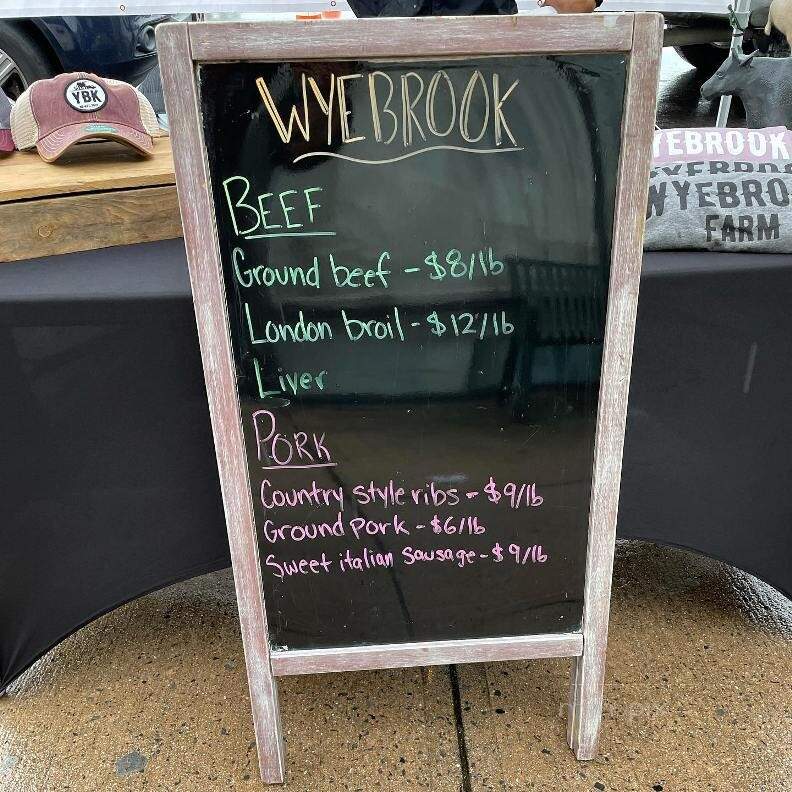 WYEBROOK
BEEF
Ground beef - $8/lb
London broil - $12/lb
Liver
PORK
Country style ribs - $9/lb
Ground Pork - $6/lb
Sweet italian Sausage - $9/lb
YBK
YEBROOK
WYEBRO
FARM